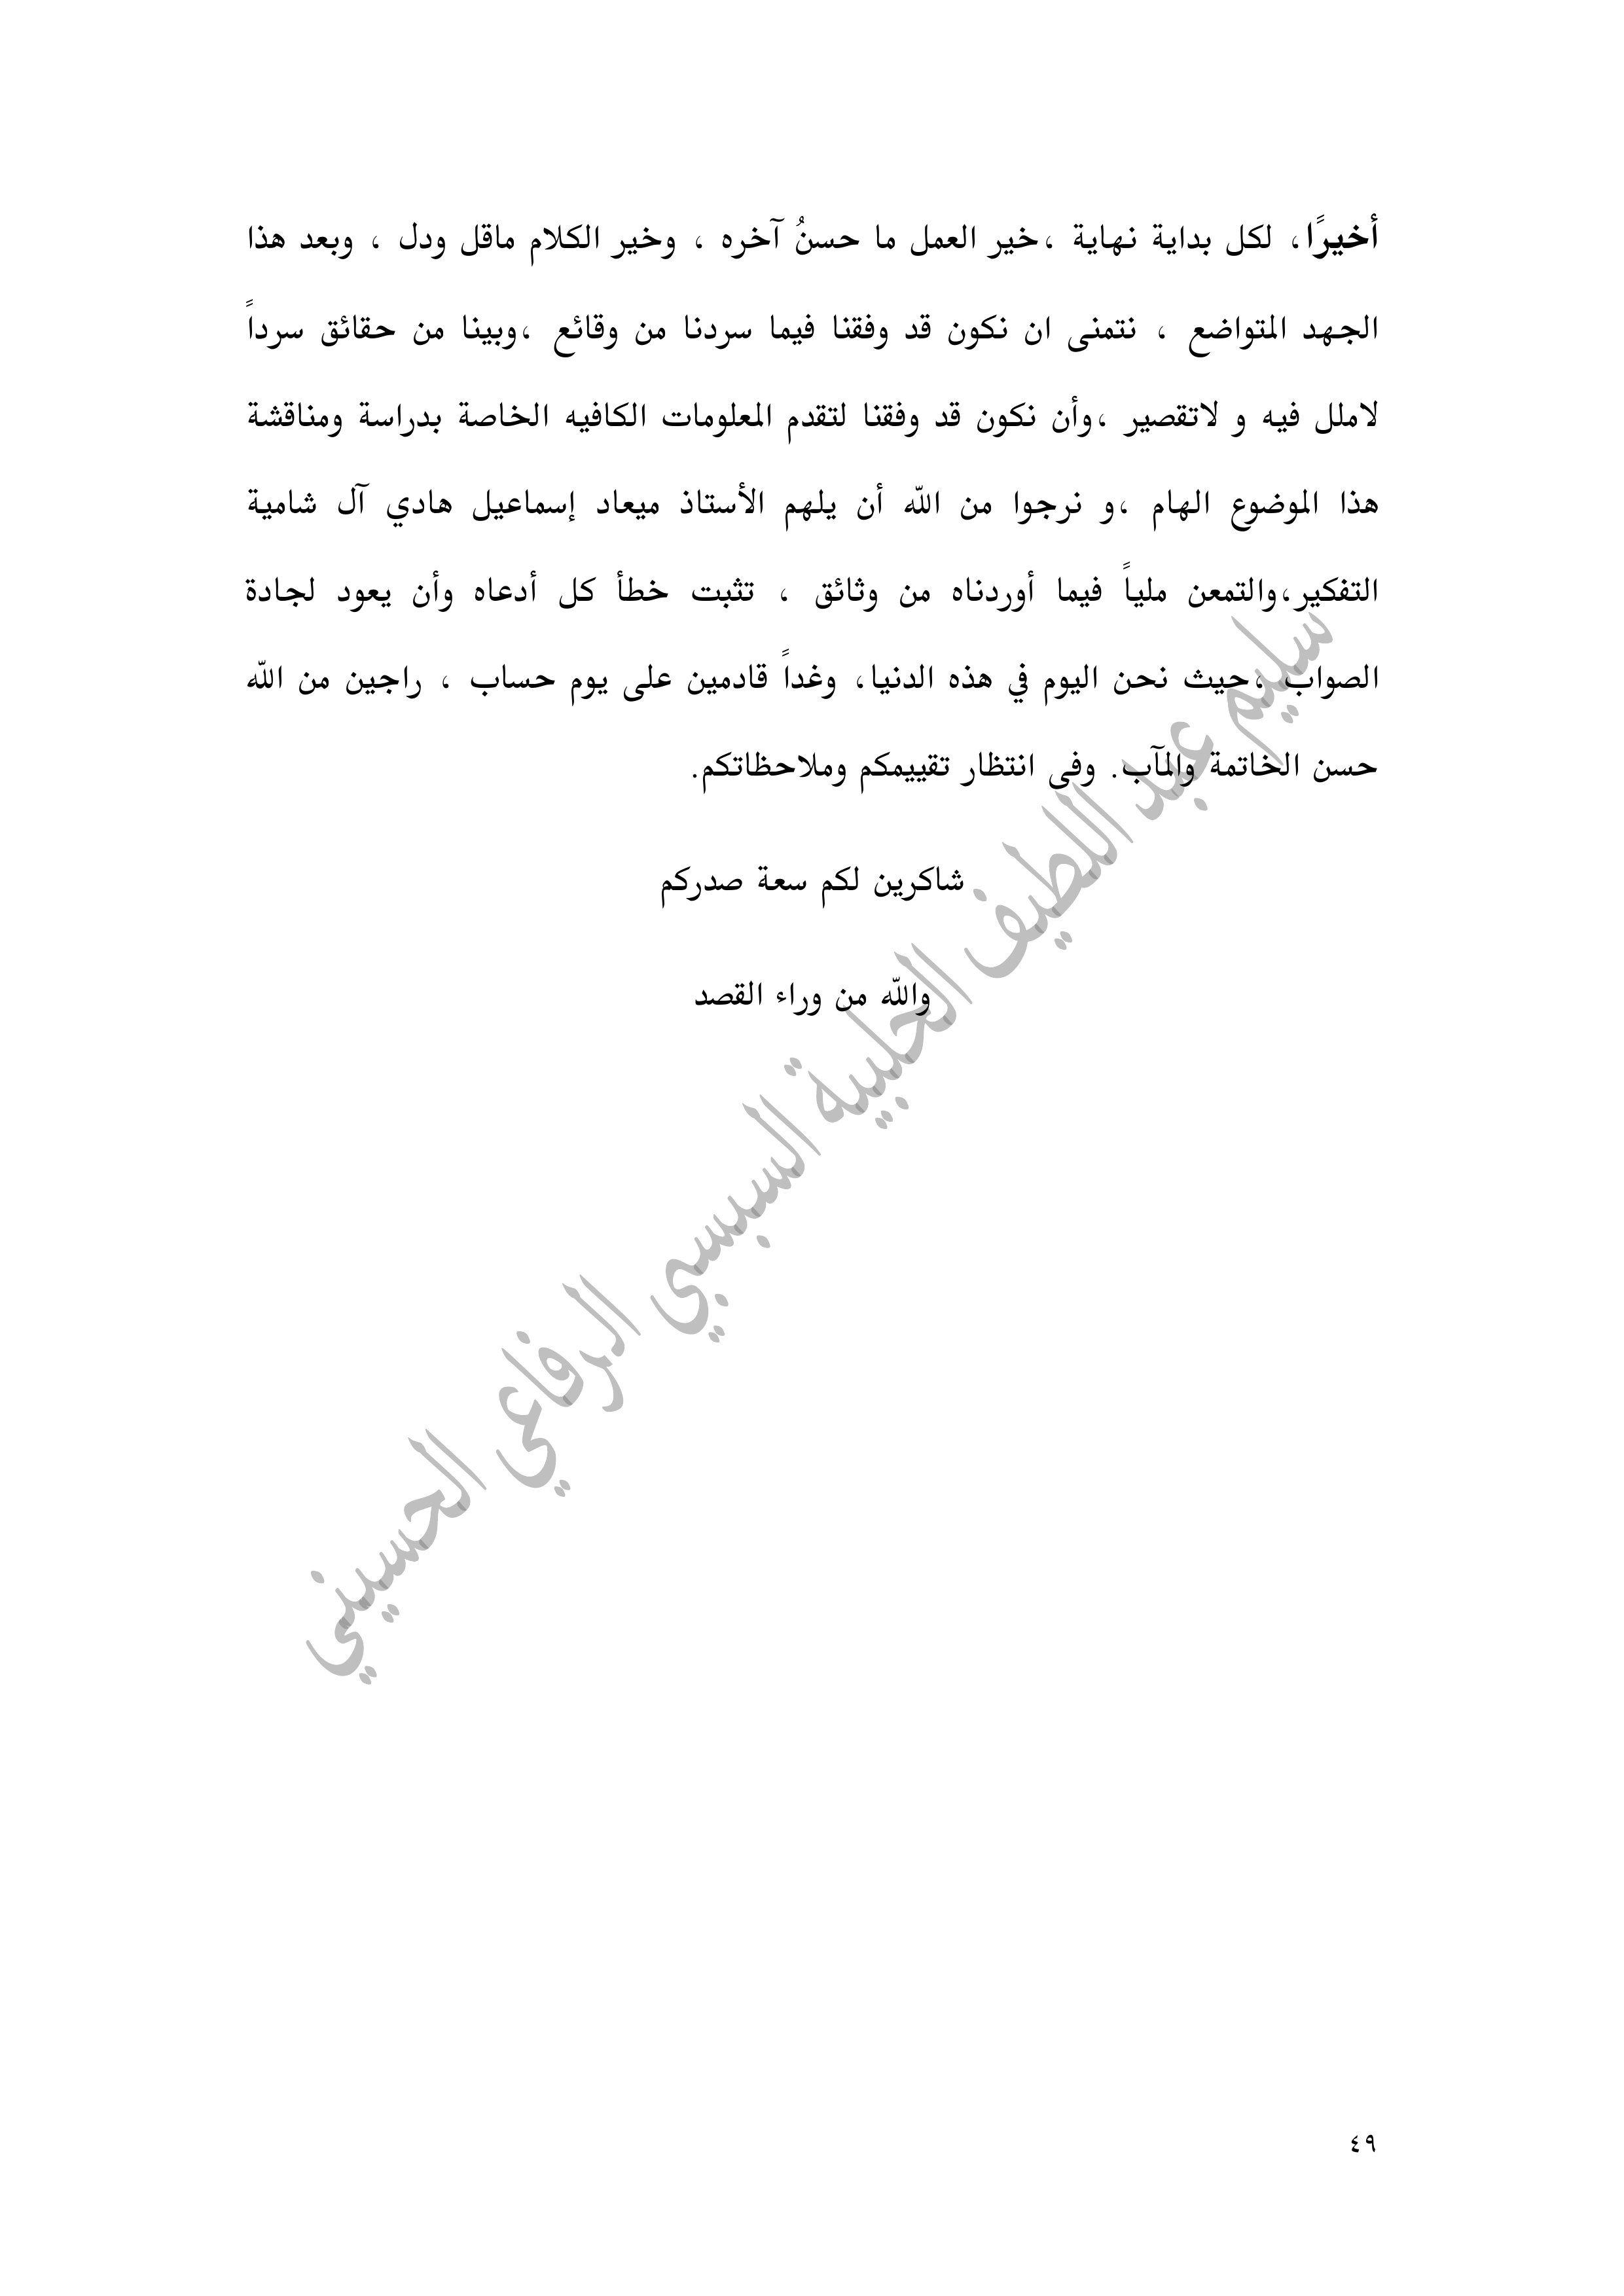 أخيرًا، لكل بداية نهاية ،خير العمل ما حسنُ آخره ، وخير الكلام ماقل ودل ، وبعد هذا
الجهد المتواضع ، نتمنى ان نكون قد وفقنا فيما سردنا من وقائع ،وبينا من حقائق سرداً
لاملل فيه و لاتقصير ،وأن نكون قد وفقنا لتقدم المعلومات الكافيه الخاصة بدراسة ومناقشة
هذا الموضوع الهام ،و نرجوا من الله أن يلهم الأستاذ ميعاد إسماعيل هادي آل شامية
التفكير،والتمعن ملياً فيما أوردناه من وثائق ، تثبت خطأ كل أدعاه وأن يعود لجادة
الصواب ،حيث نحن اليوم في هذه الدنيا، وغداً قادمين على يوم حساب ، راجين من الله
حسن الخاتمة والمآب. وفى انتظار تقييمكم وملاحظاتكم.
شاكرين لكم سعة صدركم
والله من وراء القصد
سليم عبد اللطيف الحلبية السبسبي الرفاعي الحسيني
٤٩